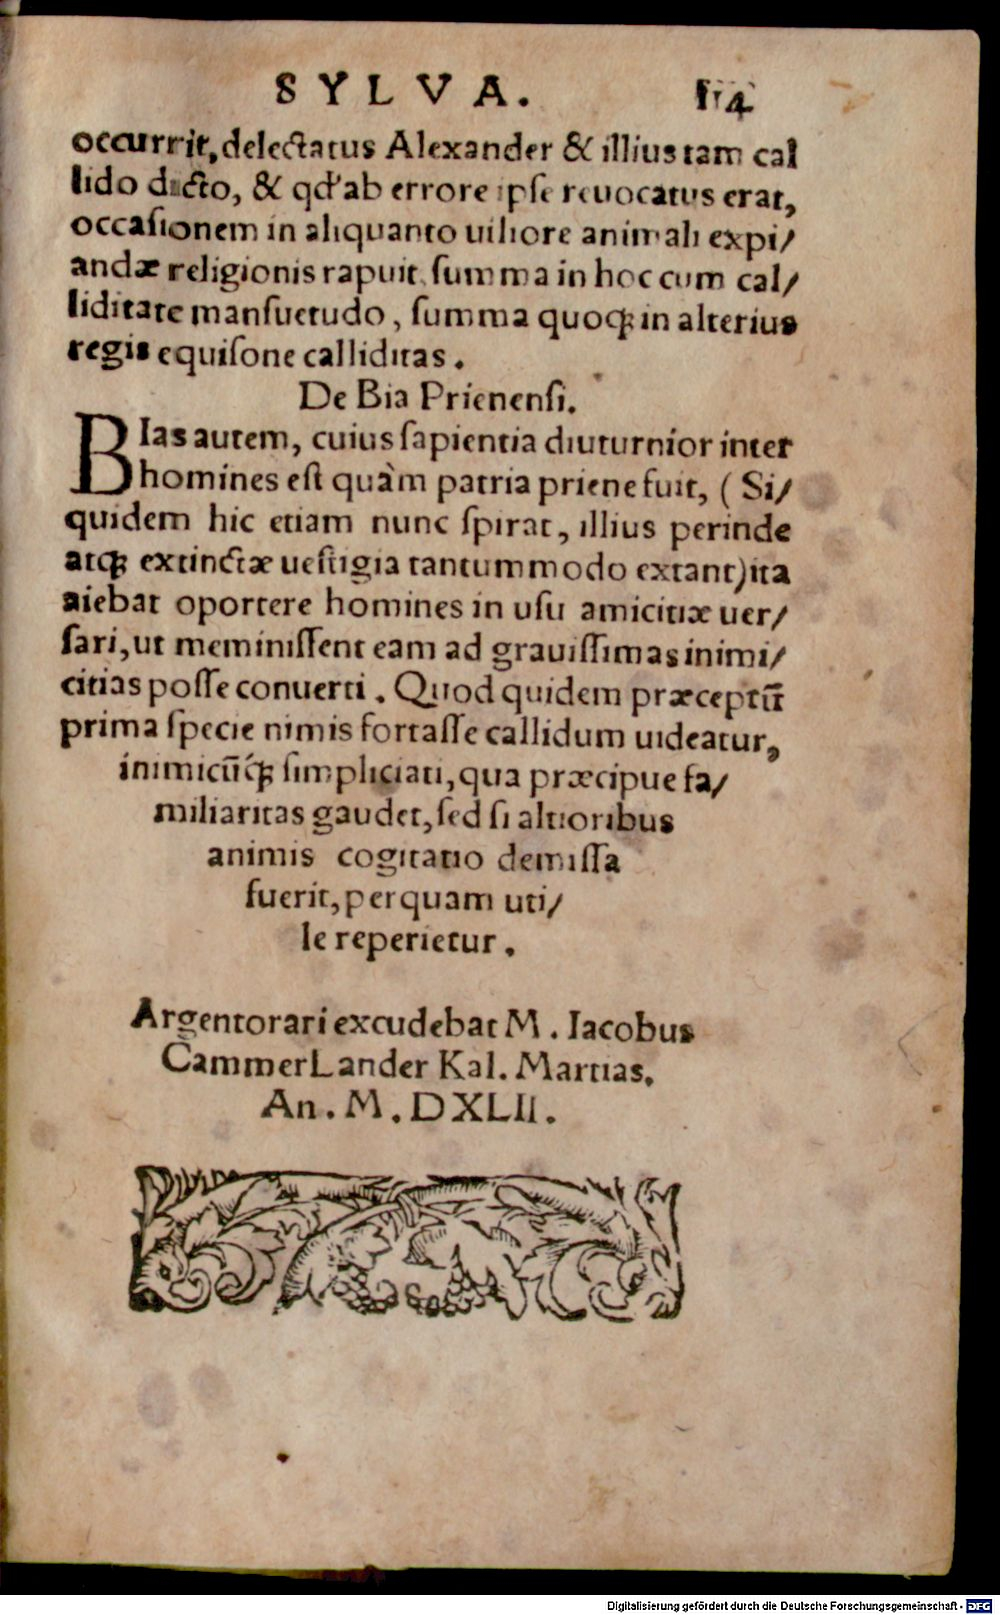 SYLVA. 114
occurrit, delectatus Alexander & illius tam cal
lido dicto, & qđ ab errore ipse reuocatus erat,
occasionem in aliquanto uiliore animali expi/
andæ religionis rapuit, summa in hoc cum cal/
liditate mansuetudo, summa quoqꝫ in alterius
regis equisone calliditas.
De Bia Prienensi.
BIas autem, cuius sapientia diuturnior inter
homines est quàm patria priene fuit, (Si/
quidem hic etiam nunc spirat, illius perinde
atqꝫ extinctæ uestigia tantummodo extant) ita
aiebat oportere homines in usu amicitiæ uer/
sari, ut meminissent eam ad grauissimas inimi/
citias posse conuerti. Quod quidem præceptū
prima specie nimis fortasse callidum uideatur,
inimicūq́ꝫ simpliciati, qua præcipue fa/
miliaritas gaudet, sed si altioribus
animis cogitatio demissa
fuerit, perquam uti/
le reperietur.
Argentorari excudebat M. Iacobus
CammerLander Kal. Martias.
An. M. DXLII.
Digitalisierung gefördert durch die Deutsche Forschungsgemeinschaft - DFG